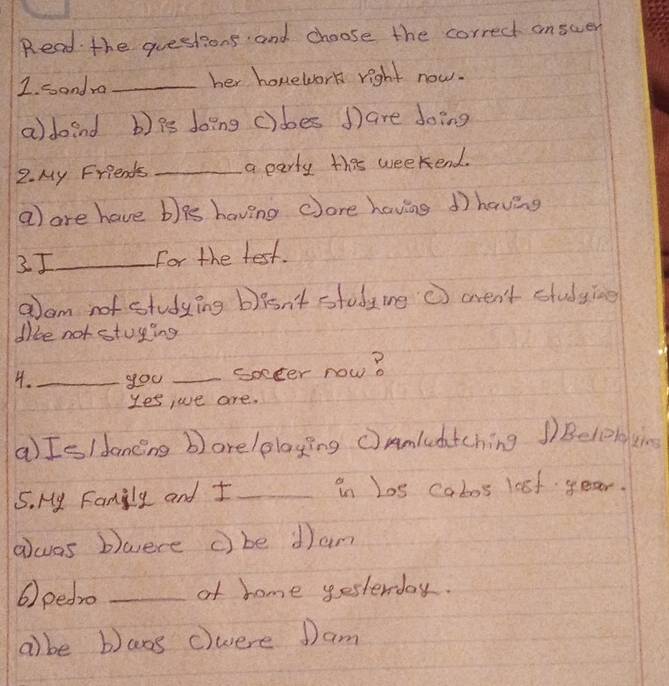 Read the questions and choose the correct answer
1. Sandra ____ her homework right now.
a) doind b) is doing c) does d) are doing
2. My Friends ____ a party this weekend.
a) are have b) is having c) are having d) having
3. I ____ For the test.
a) am not studying b) isn't studying c) aren't studying
d) be not stuying
4. ____ you ____ soccer now?
Yes, we are.
a) Is/dancing b) are/playing c) am/watching d) Be/playing
5. My Family and I ____ in Los cabos last year.
a) was b) were c) be d) am
6) pedro ____ at home yesterday.
a) be b) was c) were d) am